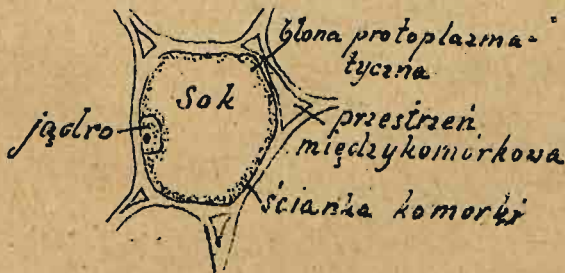 błona protoplazma-
tyczna
Sok
jądro
przestrzeń
międzykomórkowa
ścianka komórki